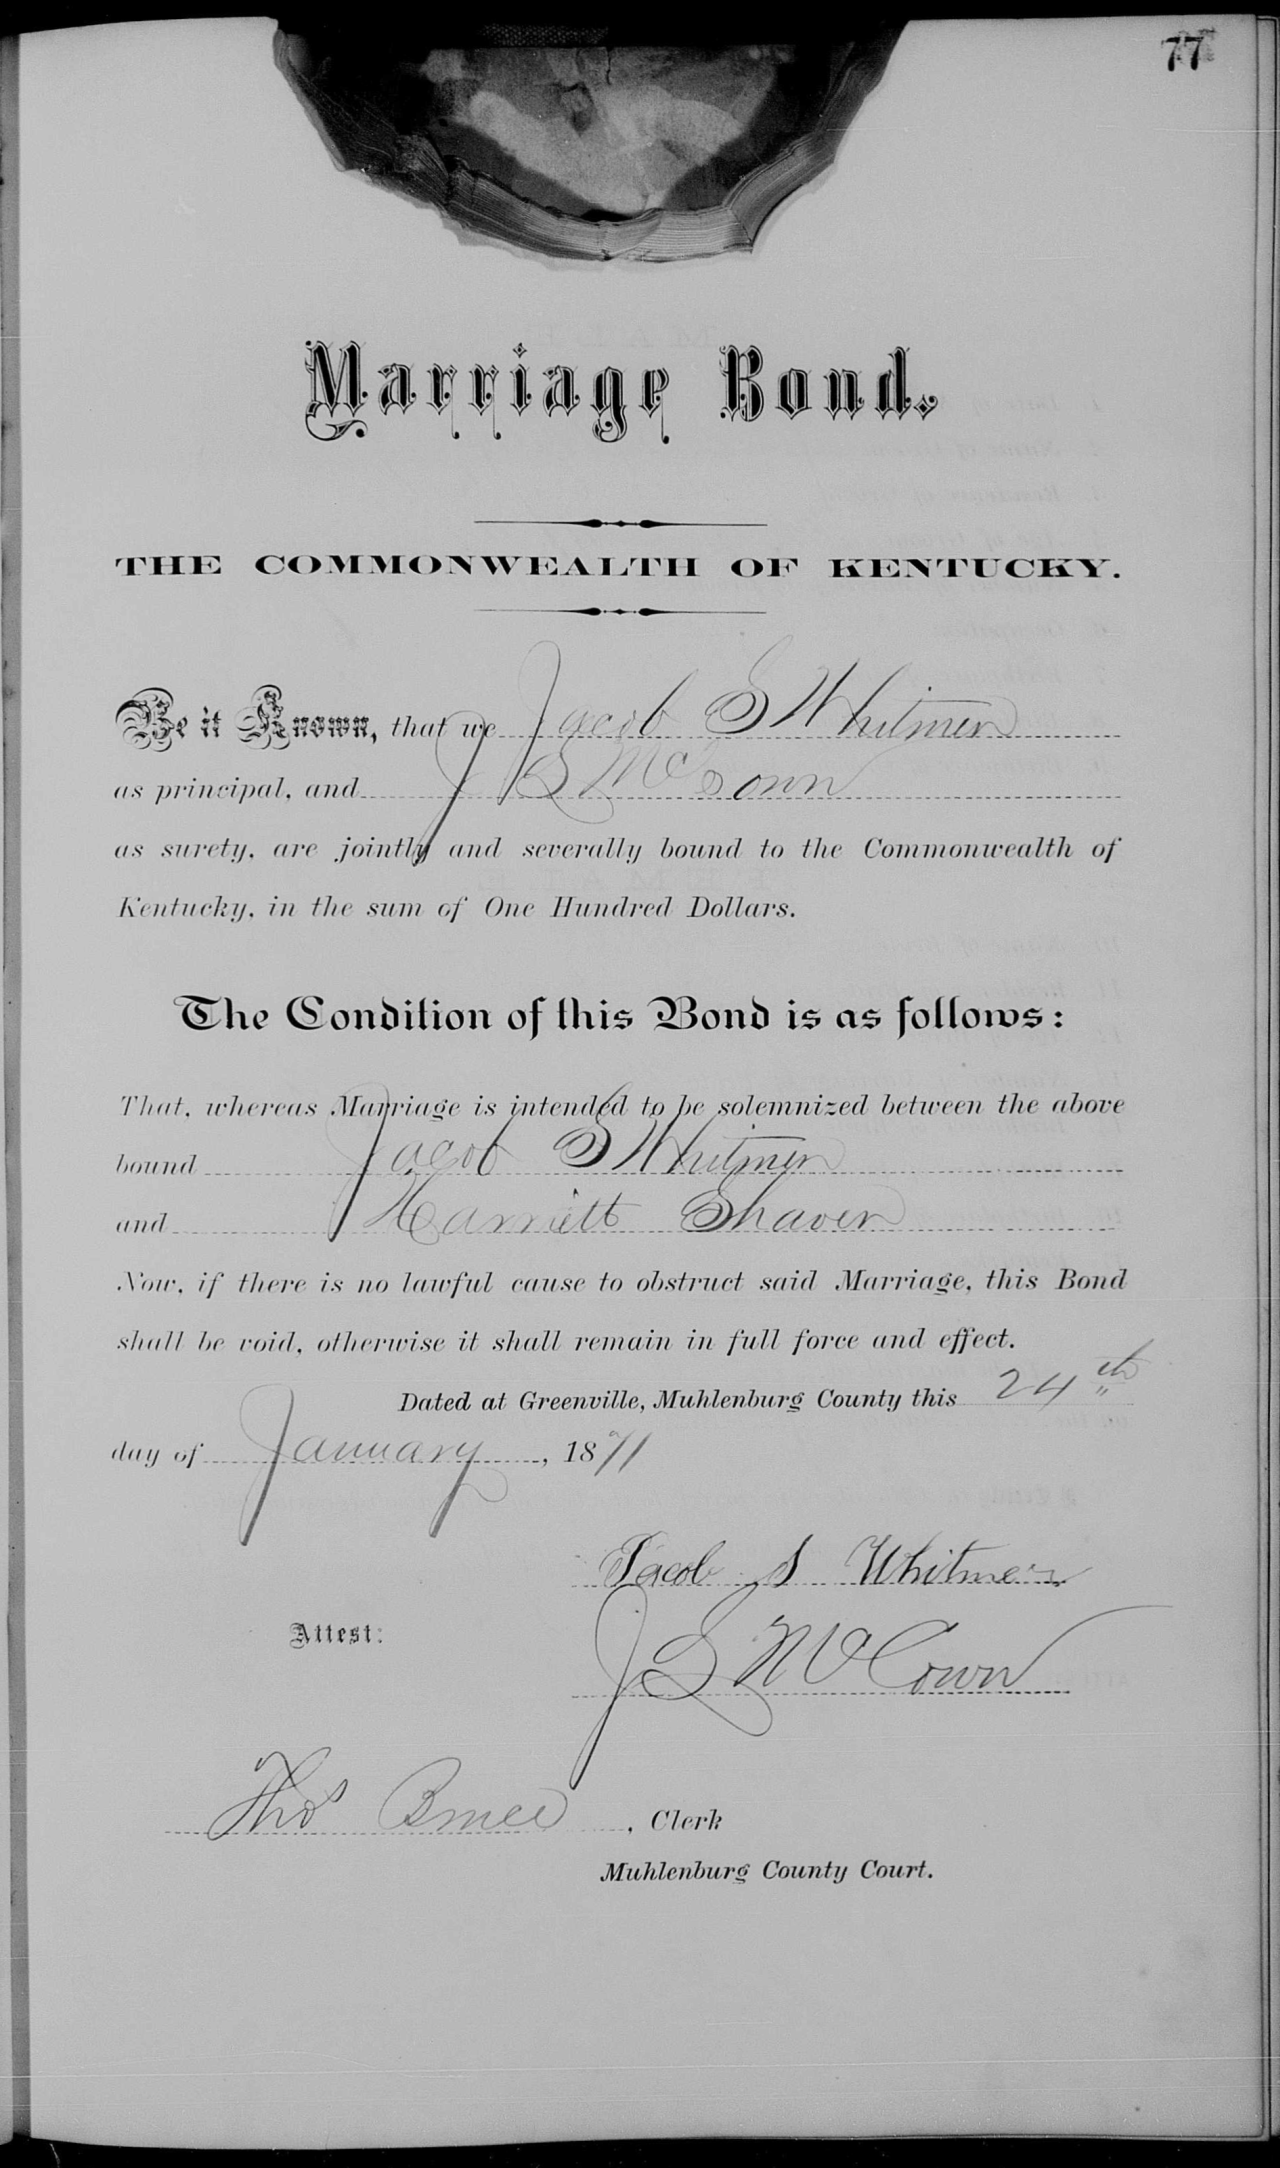 77
Marriage Bond.
THE COMMONWEALTH OF KENTUCKY.
Be it Known, that we Jacob S Whitmer
as principal, and J S McCown
as surety, are jointly and severally bound to the Commonwealth of
Kentucky, in the sum of One Hundred Dollars.
The Condition of this Bond is as follows:
That, whereas Marriage is intended to be solemnized between the above
bound Jacob S Whitmer
and Harriett Shaver
Now, if there is no lawful cause to obstruct said Marriage, this Bond
shall be void, otherwise it shall remain in full force and effect.
Dated at Greenville, Muhlenburg County this 24th
day of January, 1871
Jacob S Whitmer
Attest:
J S McCown
Thos Bruce, Clerk
Muhlenburg County Court.